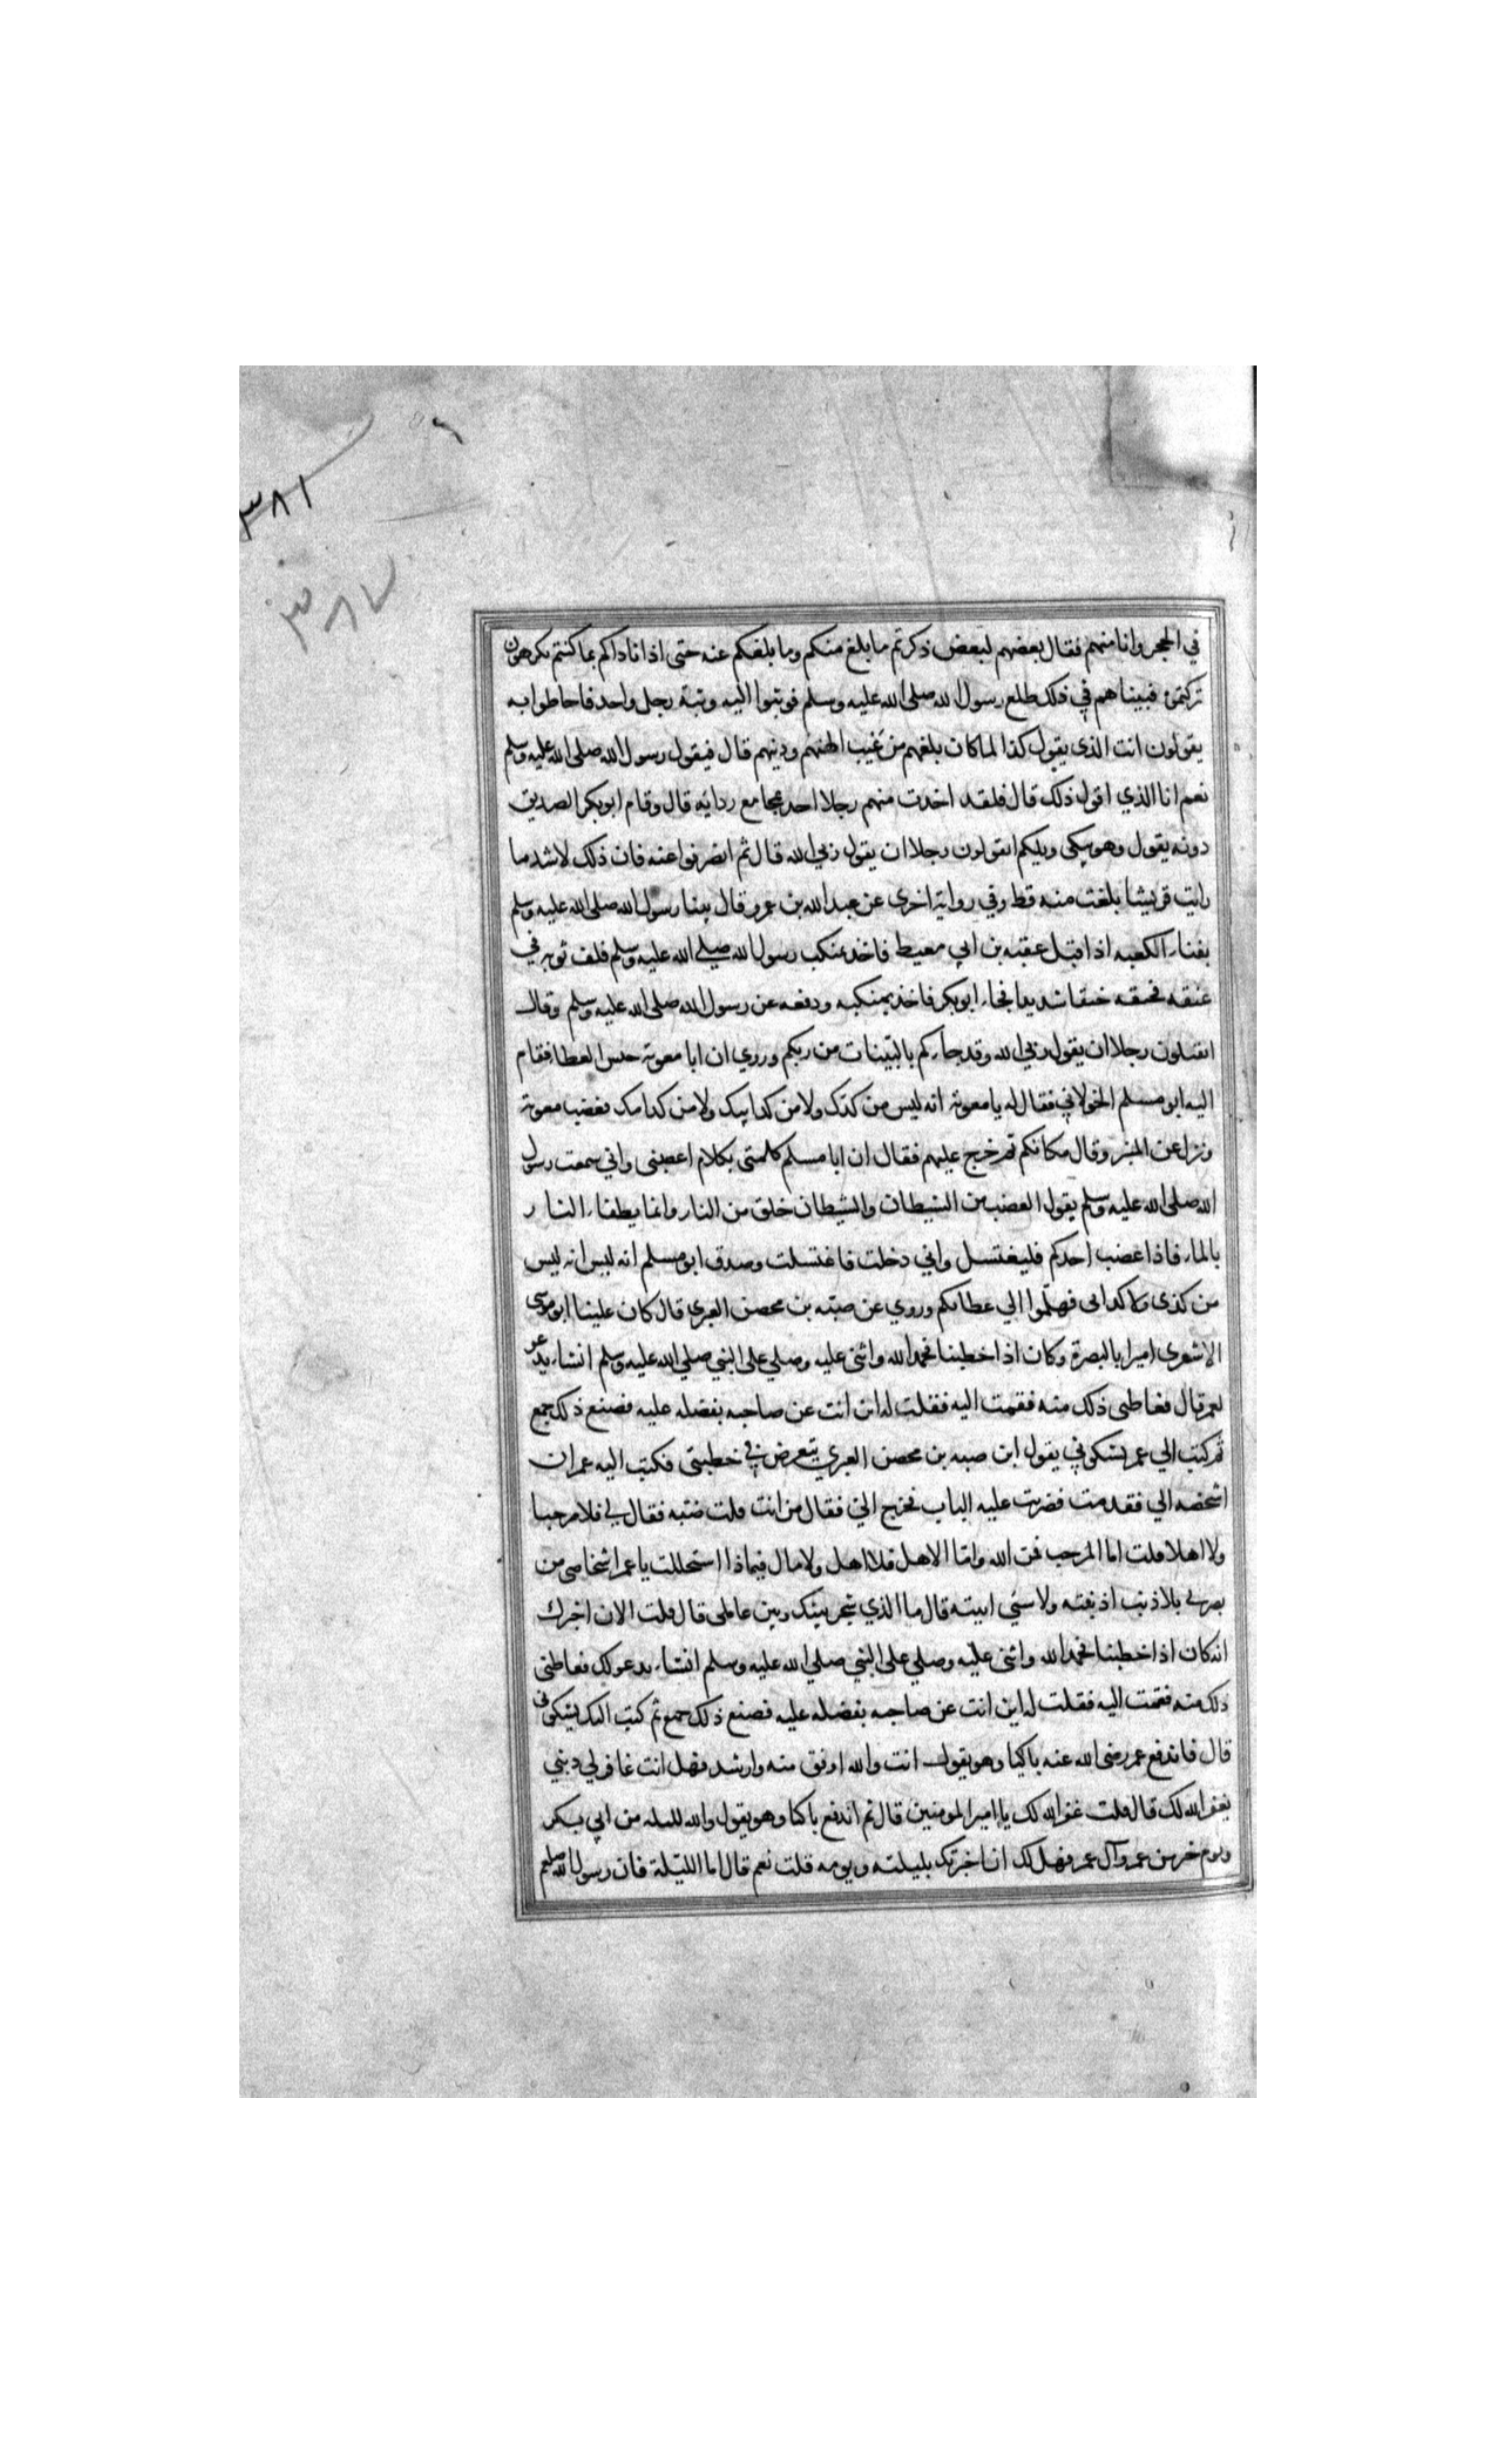 ٣٨١
٣٨٢
في الحجر وانا منهم فقال بعضهم لبعض ذكرتم ما بلغ منكم وما بلغكم عنه حتى اذا ناداكم بما كنتم تكرهون
تركتموه فبيناهم في ذلك طلع رسول الله صلى الله عليه وسلم فوثبوا اليه وثبة رجل واحد فاحاطوا به
يقولون انت الذى يقول كذا لما كان بلغهم من غيب الهتهم ودينهم قال فيقول رسول الله صلى الله عليه وسلم
نعم انا الذي اقول ذلك قال فلقد اخذت منهم رجلا احد بمجامع ردايه قال وقام ابوبكر الصديق
دونه يقول وهو يبكى ويلكم اتقولون رجلا ان يقول ربي الله قال ثم انصرفوا عنه فان ذلك لاشد ما
رايت قريشا بلغت منه قط وفي رواية اخرى عن عبد الله بن عمرو قال بينا رسول الله صلى الله عليه وسلم
بفناء الكعبه اذ اقبل عقبه بن ابي معيط فاخذ بمنكب رسول الله صلي الله عليه وسلم فلف ثوبه في
عنقه فخنقه خنقا شديدا فجاء ابوبكر فاخذ بمنكبه ودفعه عن رسول الله صلى الله عليه وسلم وقال
اتقتلون رجلا ان يقول ربي الله وقد جاءكم بالبينات من ربكم وروي ان ابا معوية حبس العطا فقام
اليه ابو مسلم الخولاني فقال له يا معوية انه ليس من كدك ولا من كد ابيك ولا من كد امك فغضب معوية
ونزل عن المنبر وقال مكانكم ثم خرج عليهم فقال ان ابا مسلم كلمتى بكلام اغضبنى واني سمعت رسول
الله صلى الله عليه وسلم يقول الغضب من الشيطان والشيطان خلق من النار وانما يطفاء النار
بالماء فاذا غضب احدكم فليغتسل واني دخلت فاغتسلت وصدق ابو مسلم انه ليس انه ليس
من كدى ولا كد ابى فهلموا الي عطاكم وروي عن ضبه بن محصن العبرى قال كان علينا ابو موسى
الاشعرى اميرا بالبصرة وكان اذا خطبنا فحمد الله واثنى عليه وصلي على النبي صلي الله عليه وسلم انشاء يدعو
لعمر قال فغاظنى ذلك منه فقمت اليه فقلت له اين انت عن صاحبه بفضله عليه فصنع ذلك جمع
ثم كتب الي عمر يشكوني يقول ان ضبه بن محصن العبري يتعرض في خطبتى فكتب اليه عمر ان
اشخصه الي فقدمت فضربت عليه الباب فخرج الي فقال من انت قلت ضبه فقال لي فلا مرحبا
ولا اهلا قلت اما المرحب فمن الله واما الاهل فلا اهل ولا مال فبماذا استحللت يا عمر اشخاصى من
بصرتى بلا ذنب اذنبته ولا شي اتيته قال ما الذي شجر بينك وبين عاملى قال قلت الان اخبرك
انه كان اذا خطبنا فحمد الله واثنى عليه وصلي على النبي صلي الله عليه وسلم انشاء يدعو لك فغاظنى
ذلك منه فقمت اليه فقلت له اين انت عن صاحبه بفضله عليه فصنع ذلك جمع ثم كتب اليك يشكونى
قال فاندفع عمر رضى الله عنه باكيا وهو يقول انت والله اوفق منه وارشد فهل انت غافر لي ذنبي
يغفر الله لك قال قلت غفر الله لك يا امير المومنين قال ثم اندفع باكيا وهو يقول والله لليله من ابي بكر
ويوم خير من عمر وآل عمر فهل لك ان اخبرتك بليلته ويومه قلت نعم قال اما الليلة فان رسول الله صلعم